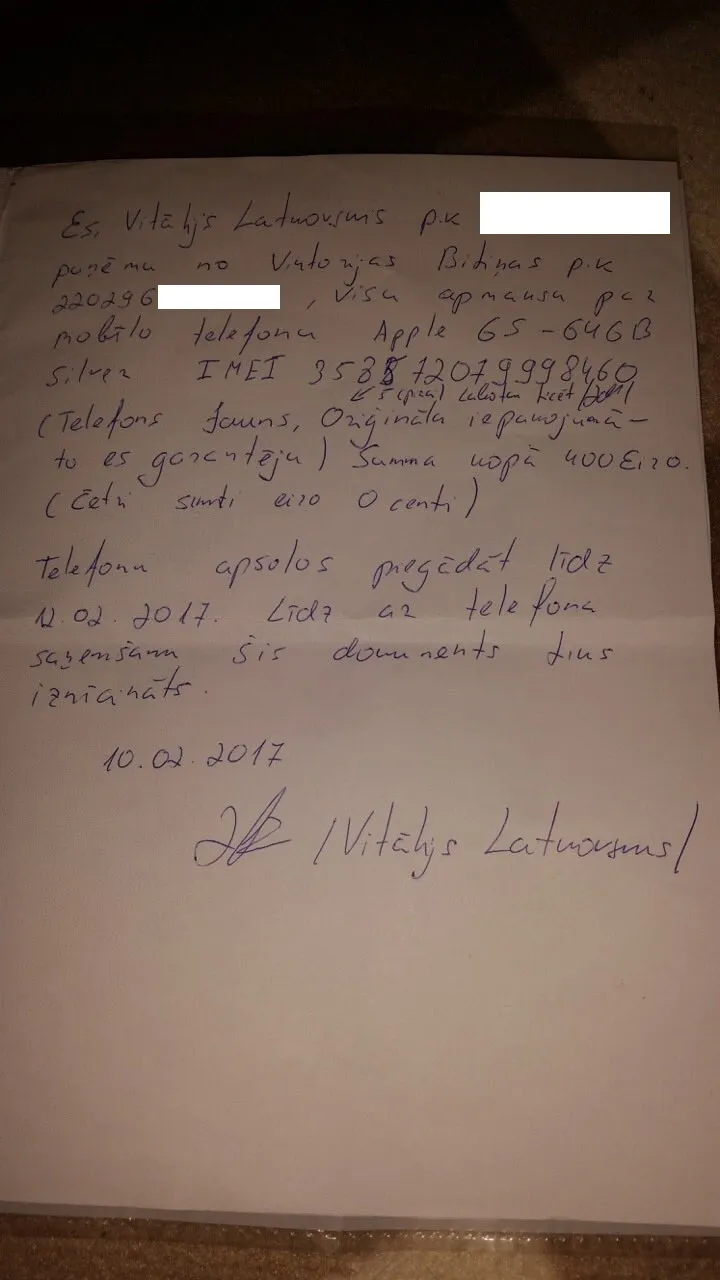 Es, Vitālijs Latkovskis p.k
paņēmu no Viktorijas Bitiņas p.k
220296 , visu apmaksu par
mobīlo telefonu Apple 6S - 64GB
Silver IMEI 358572079998460
5 (pieci) labotam ticēt
(Telefons Jauns, Oriģināla iepakojumā -
to es garantēju) Summa kopā 400 Eiro.
(Četri simti eiro 0 centi)
Telefonu apsolos piegādāt līdz
12.02.2017. Līdz ar telefona
saņemšanu šis dokuments tiks
iznīcināts.
10.02.2017
/Vitālijs Latkovskis/